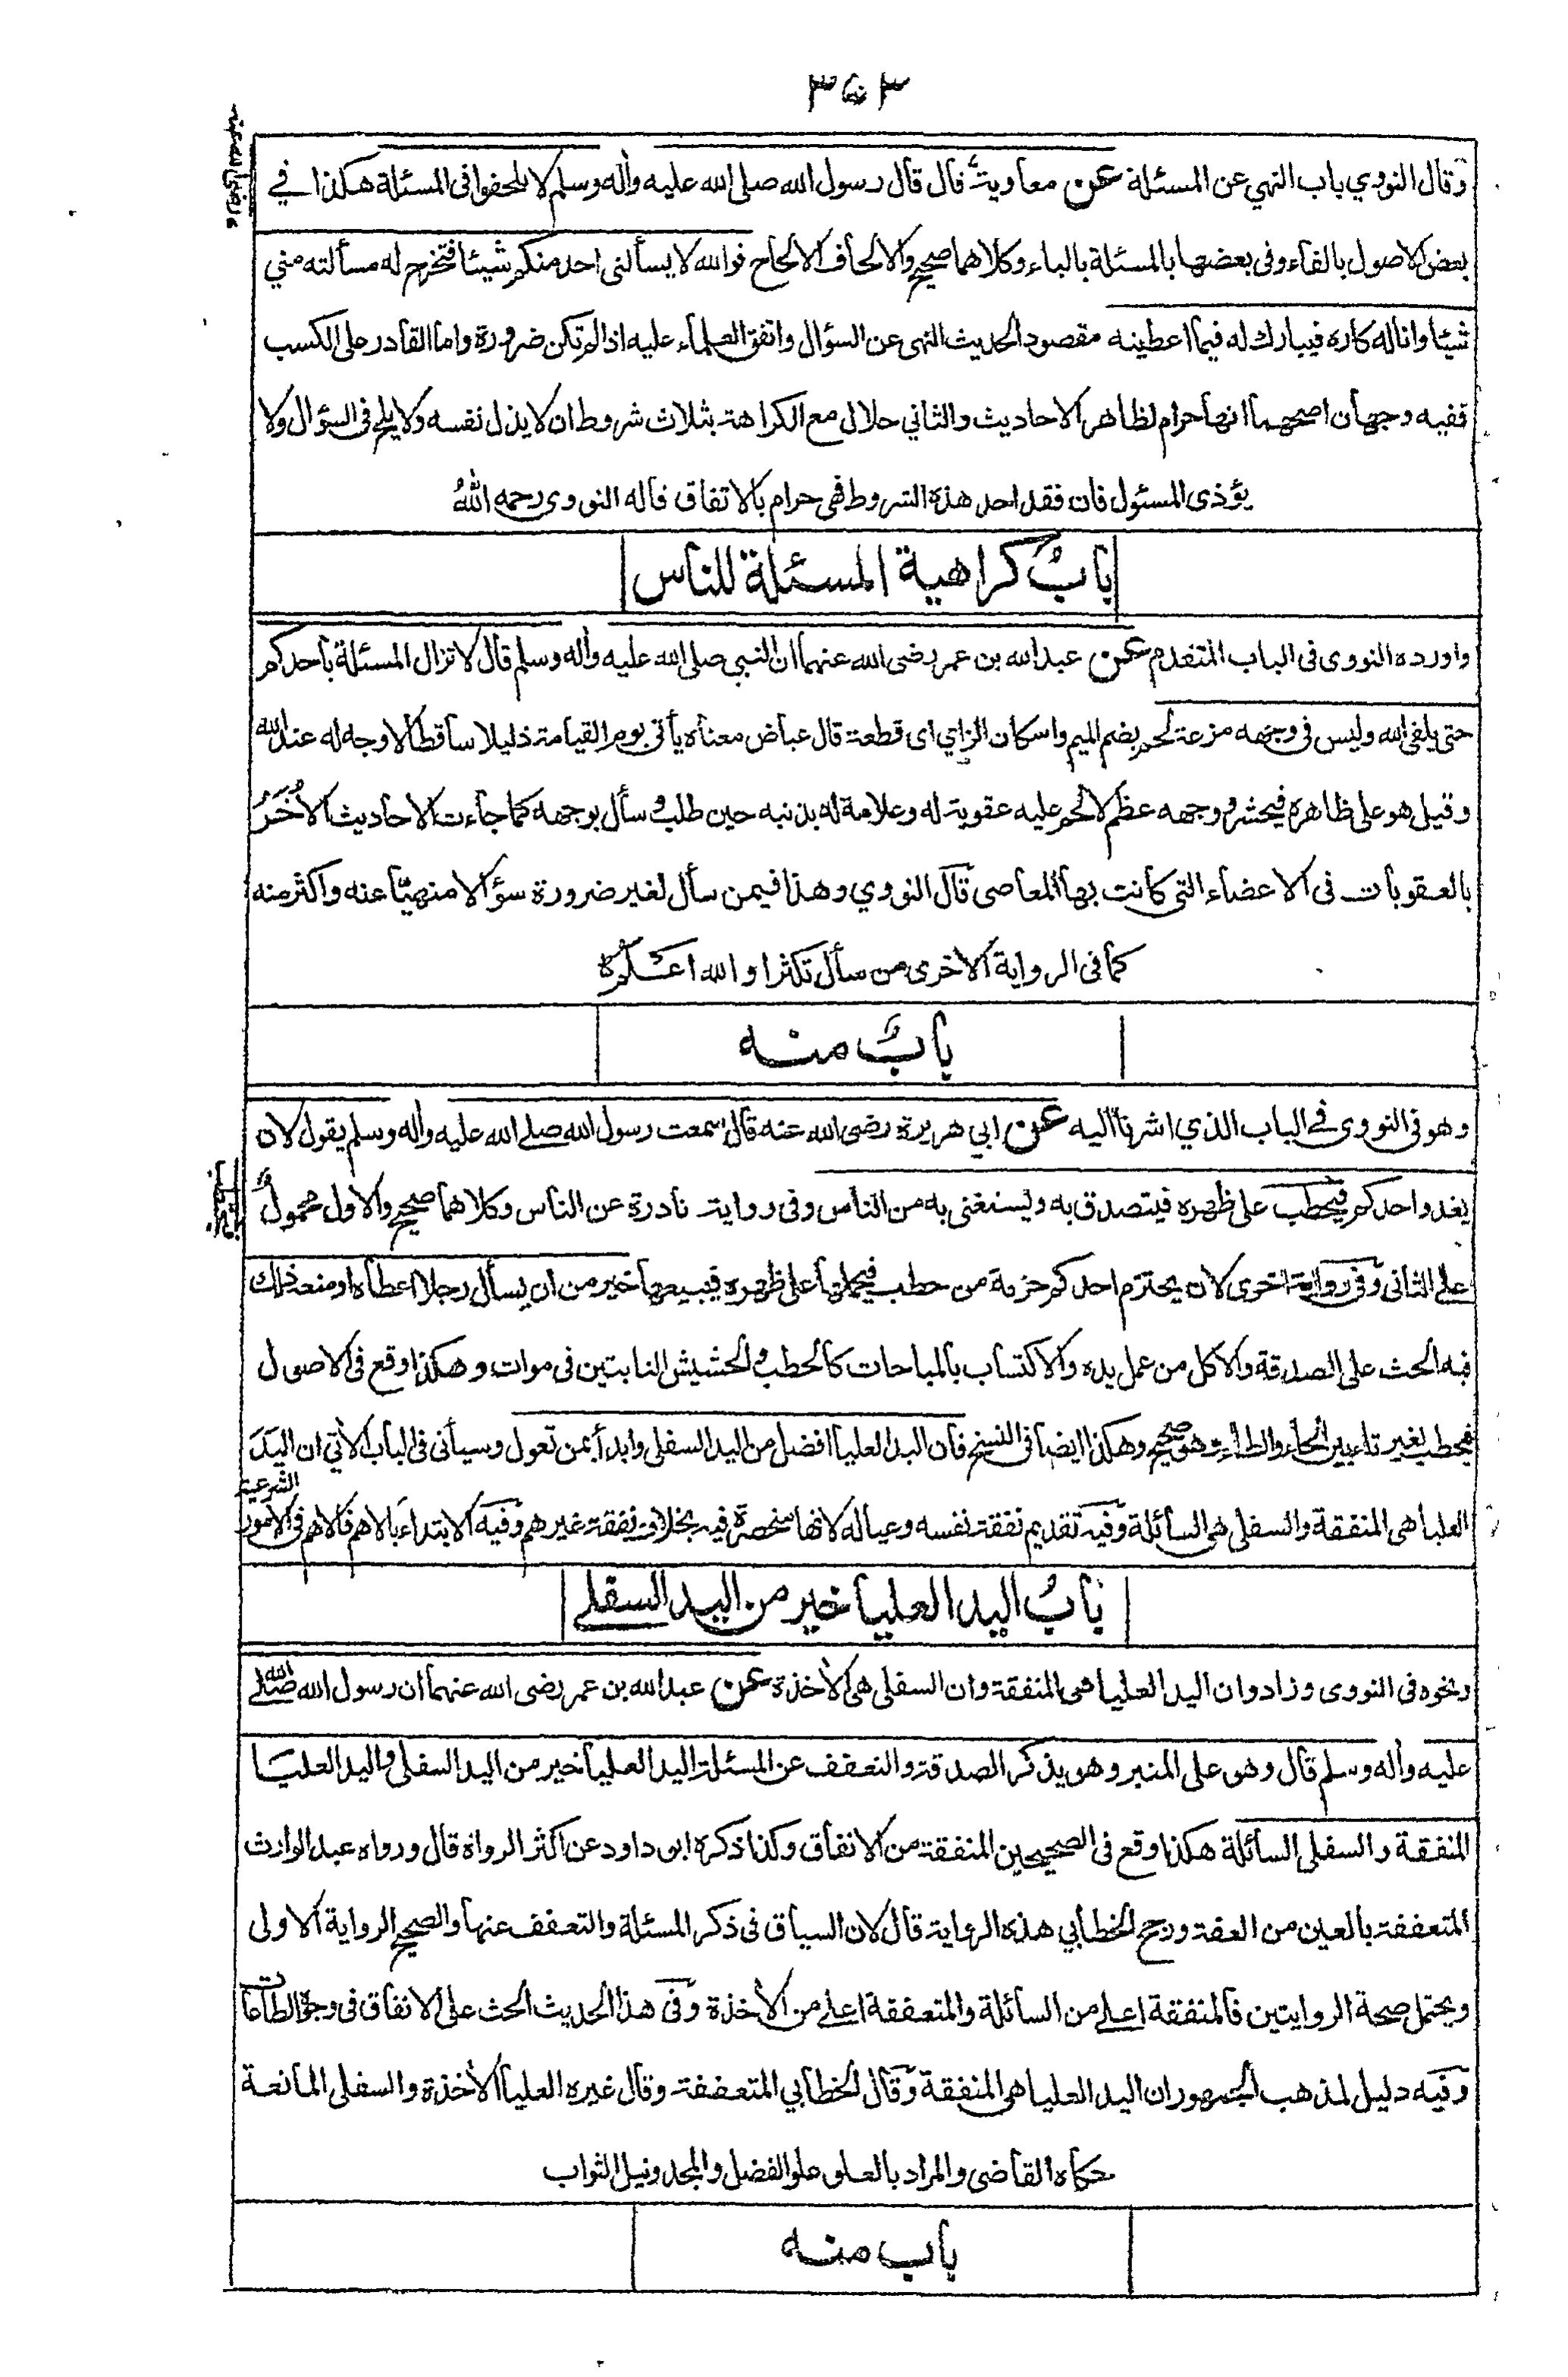 ٣٥٣
وقال النووي باب النهي عن المسئلة عن معاوية قال قال رسول الله صلى الله عليه وأله وسلم لا تلحفوا فى المسئلة هكذا في
بعض الاصول بالفاء وفى بعضها بالمسئلة بالباء وكلاهما صحيح والالحاف الالحاح فوالله لا يسألنى احد منكم شيئا فتخرج له مسألته مني
شيئا وانا له كاره فيبارك له فيما اعطيته مقصود الحديث النهى عن السؤال واتفق العلماء عليه اذا لم تكن ضرورة واما القادر على الكسب
ففيه وجهان اصحهما انها حرام لظاهر الاحاديث والثاني حلال مع الكراهة بثلاث شروط ان لا يذل نفسه ولا يلح فى السؤال ولا
يؤذى المسئول فان فقد احد هذه الشروط فهى حرام بالاتفاق قاله النووى رحمه الله
باب كراهية المسئلة للناس
واورده النووى فى الباب المتقدم عن عبد الله بن عمر رضى الله عنهما ان النبي صلى الله عليه وأله وسلم قال لا تزال المسئلة بأحدكم
حتى يلقى الله وليس فى وجهه مزعة لحم بضم الميم واسكان الزاي اى قطعة قال عياض معناه يأتى يوم القيامة ذليلا ساقطا لا وجه له عند الله
وقيل هو على ظاهره فيحشر ووجهه عظم لا لحم عليه عقوبة له وعلامة له بذنبه حين طلب وسأل بوجهه كما جاءت الاحاديث الأخر
بالعقوبات فى الاعضاء التى كانت بها المعاصى قال النووي وهذا فيمن سأل لغير ضرورة سؤالا منهيا عنه واكثر منه
كما فى الرواية الاخرى من سأل تكثرا والله اعلم
باب منه
وهو فى النووى في الباب الذي اشرنا اليه عن ابي هريرة رضى الله عنه قال سمعت رسول الله صلى الله عليه وأله وسلم يقول لان
يغدو احدكم فيحطب على ظهره فيتصدق به ويستغنى به من الناس وفى رواية نادرة عن الناس وكلاهما صحيح والاول محمول
على الثانى وفى رواية اخرى لان يحتزم احدكم حزمة من حطب فيحملها على ظهره فيبيعها خير من ان يسأل رجلا اعطاه او منعه ذلك
فيه الحث على الصدقة والاكل من عمل يده والاكتساب بالمباحات كالحطب والحشيش النابتين فى موات وهكذا وقع فى الاصول
فيحطب بغير تاء بين الحاء والطاء وهو صحيح وهكذا ايضا فى النسخ فأن اليد العليا افضل من اليد السفلى وابدأ بمن تعول وسيأتى فى الباب الأتي ان اليد
العليا هى المنفقة والسفلى هى السائلة وفيه تقديم نفقة نفسه وعياله لانها منحصرة فيه بخلاف نفقة غيرهم وفيه الابتداء بالاهم فالاهم فى الامور الشرعية
باب اليد العليا خير من اليد السفلى
ونحوه فى النووى وزاد وان اليد العليا هى المنفقة وان السفلى هى الأخذة عن عبد الله بن عمر رضى الله عنهما ان رسول الله صلى الله
عليه وأله وسلم قال وهو على المنبر وهو يذكر الصدقة والتعفف عن المسئلة اليد العليا خير من اليد السفلى واليد العليا
المنفقة والسفلى السائلة هكذا وقع فى الصحيحين المنفقة من الانفاق وكذا ذكره ابو داود عن اكثر الرواة قال ورواه عبد الوارث
المتعففة بالعين من العفة ورجح الخطابي هذه الرواية قال لان السياق فى ذكر المسئلة والتعفف عنها والصحيح الرواية الاولى
ويحتمل صحة الروايتين فالمنفقة اعلى من السائلة والمتعففة اعلى من الأخذة وفى هذا الحديث الحث على الانفاق فى وجوه الطاعات
وفيه دليل لمذهب الجمهور ان اليد العليا هى المنفقة وقال الخطابي المتعففة وقال غيره العليا الأخذة والسفلى المانعة
حكاه القاضى والمراد بالعلو علو الفضل والمجد ونيل الثواب
باب منه